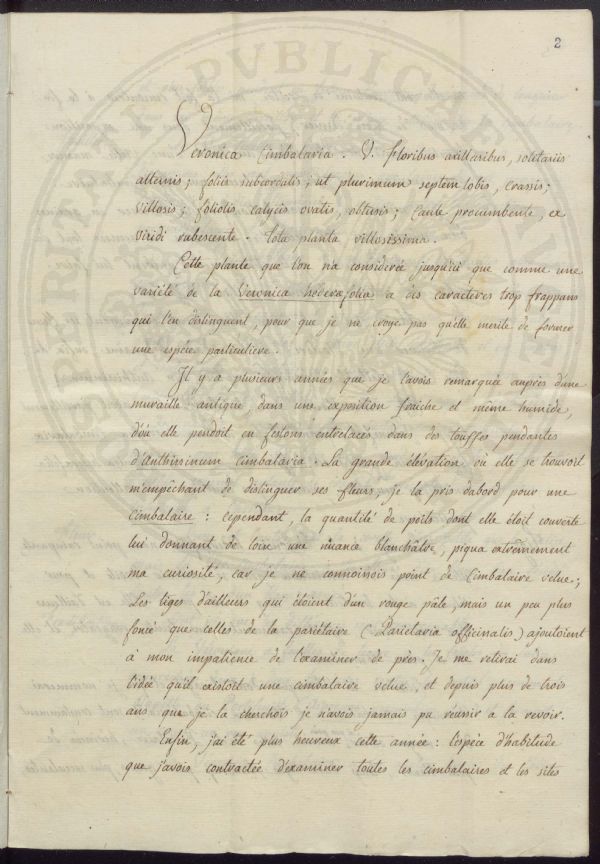 2
Veronica Cimbalaria. V. Floribus axillaribus, solitariis
alternis; foliis subcordatis; ut plurimum septem lobis, crassis;
villosis; foliolis calycis ovatis, obtusis; Caule procumbente, ex
viridi rubescente. Tota planta villosissima.
Cette plante que l'on n'a considérée jusqu'ici que comme une
variété de la Veronica hederæfolia a des caractères trop frappans
qui l'en distinguent, pour que je ne croye pas qu'elle merite de former
une espèce particuliere.
Il y a plusieurs années que je l'avois remarquée auprès d'une
muraille antique, dans une exposition fraîche et même humide,
d'où elle pendoit en festons entrelacés dans des touffes pendantes
d'Anthirsinum Cimbalaria. La grande élévation où elle se trouvoit
m'empêchant de distinguer ses fleurs, je la pris dabord pour une
Cimbalaire: cependant, la quantité de poils dont elle étoit couverte
lui donnant de loin une nuance blanchâtre, piqua extrêmement
ma curiosité, car je ne connoissois point de Cimbalaire velue;
Les tiges d'ailleurs qui étoient d'un rouge pâle, mais un peu plus
foncé que celles de la pariétaire (Parietaria officinalis) ajoutoient
à mon impatience de l'examiner de près. Je me retirai dans
l'idée qu'il existoit une cimbalaire velue, et depuis plus de trois
ans que je la cherchois je n'avois jamais pu réussir à la revoir.
Enfin, j'ai été plus heureux cette année: l'espèce d'habitude
que j'avois contractée d'examiner toutes les cimbalaires et les sites